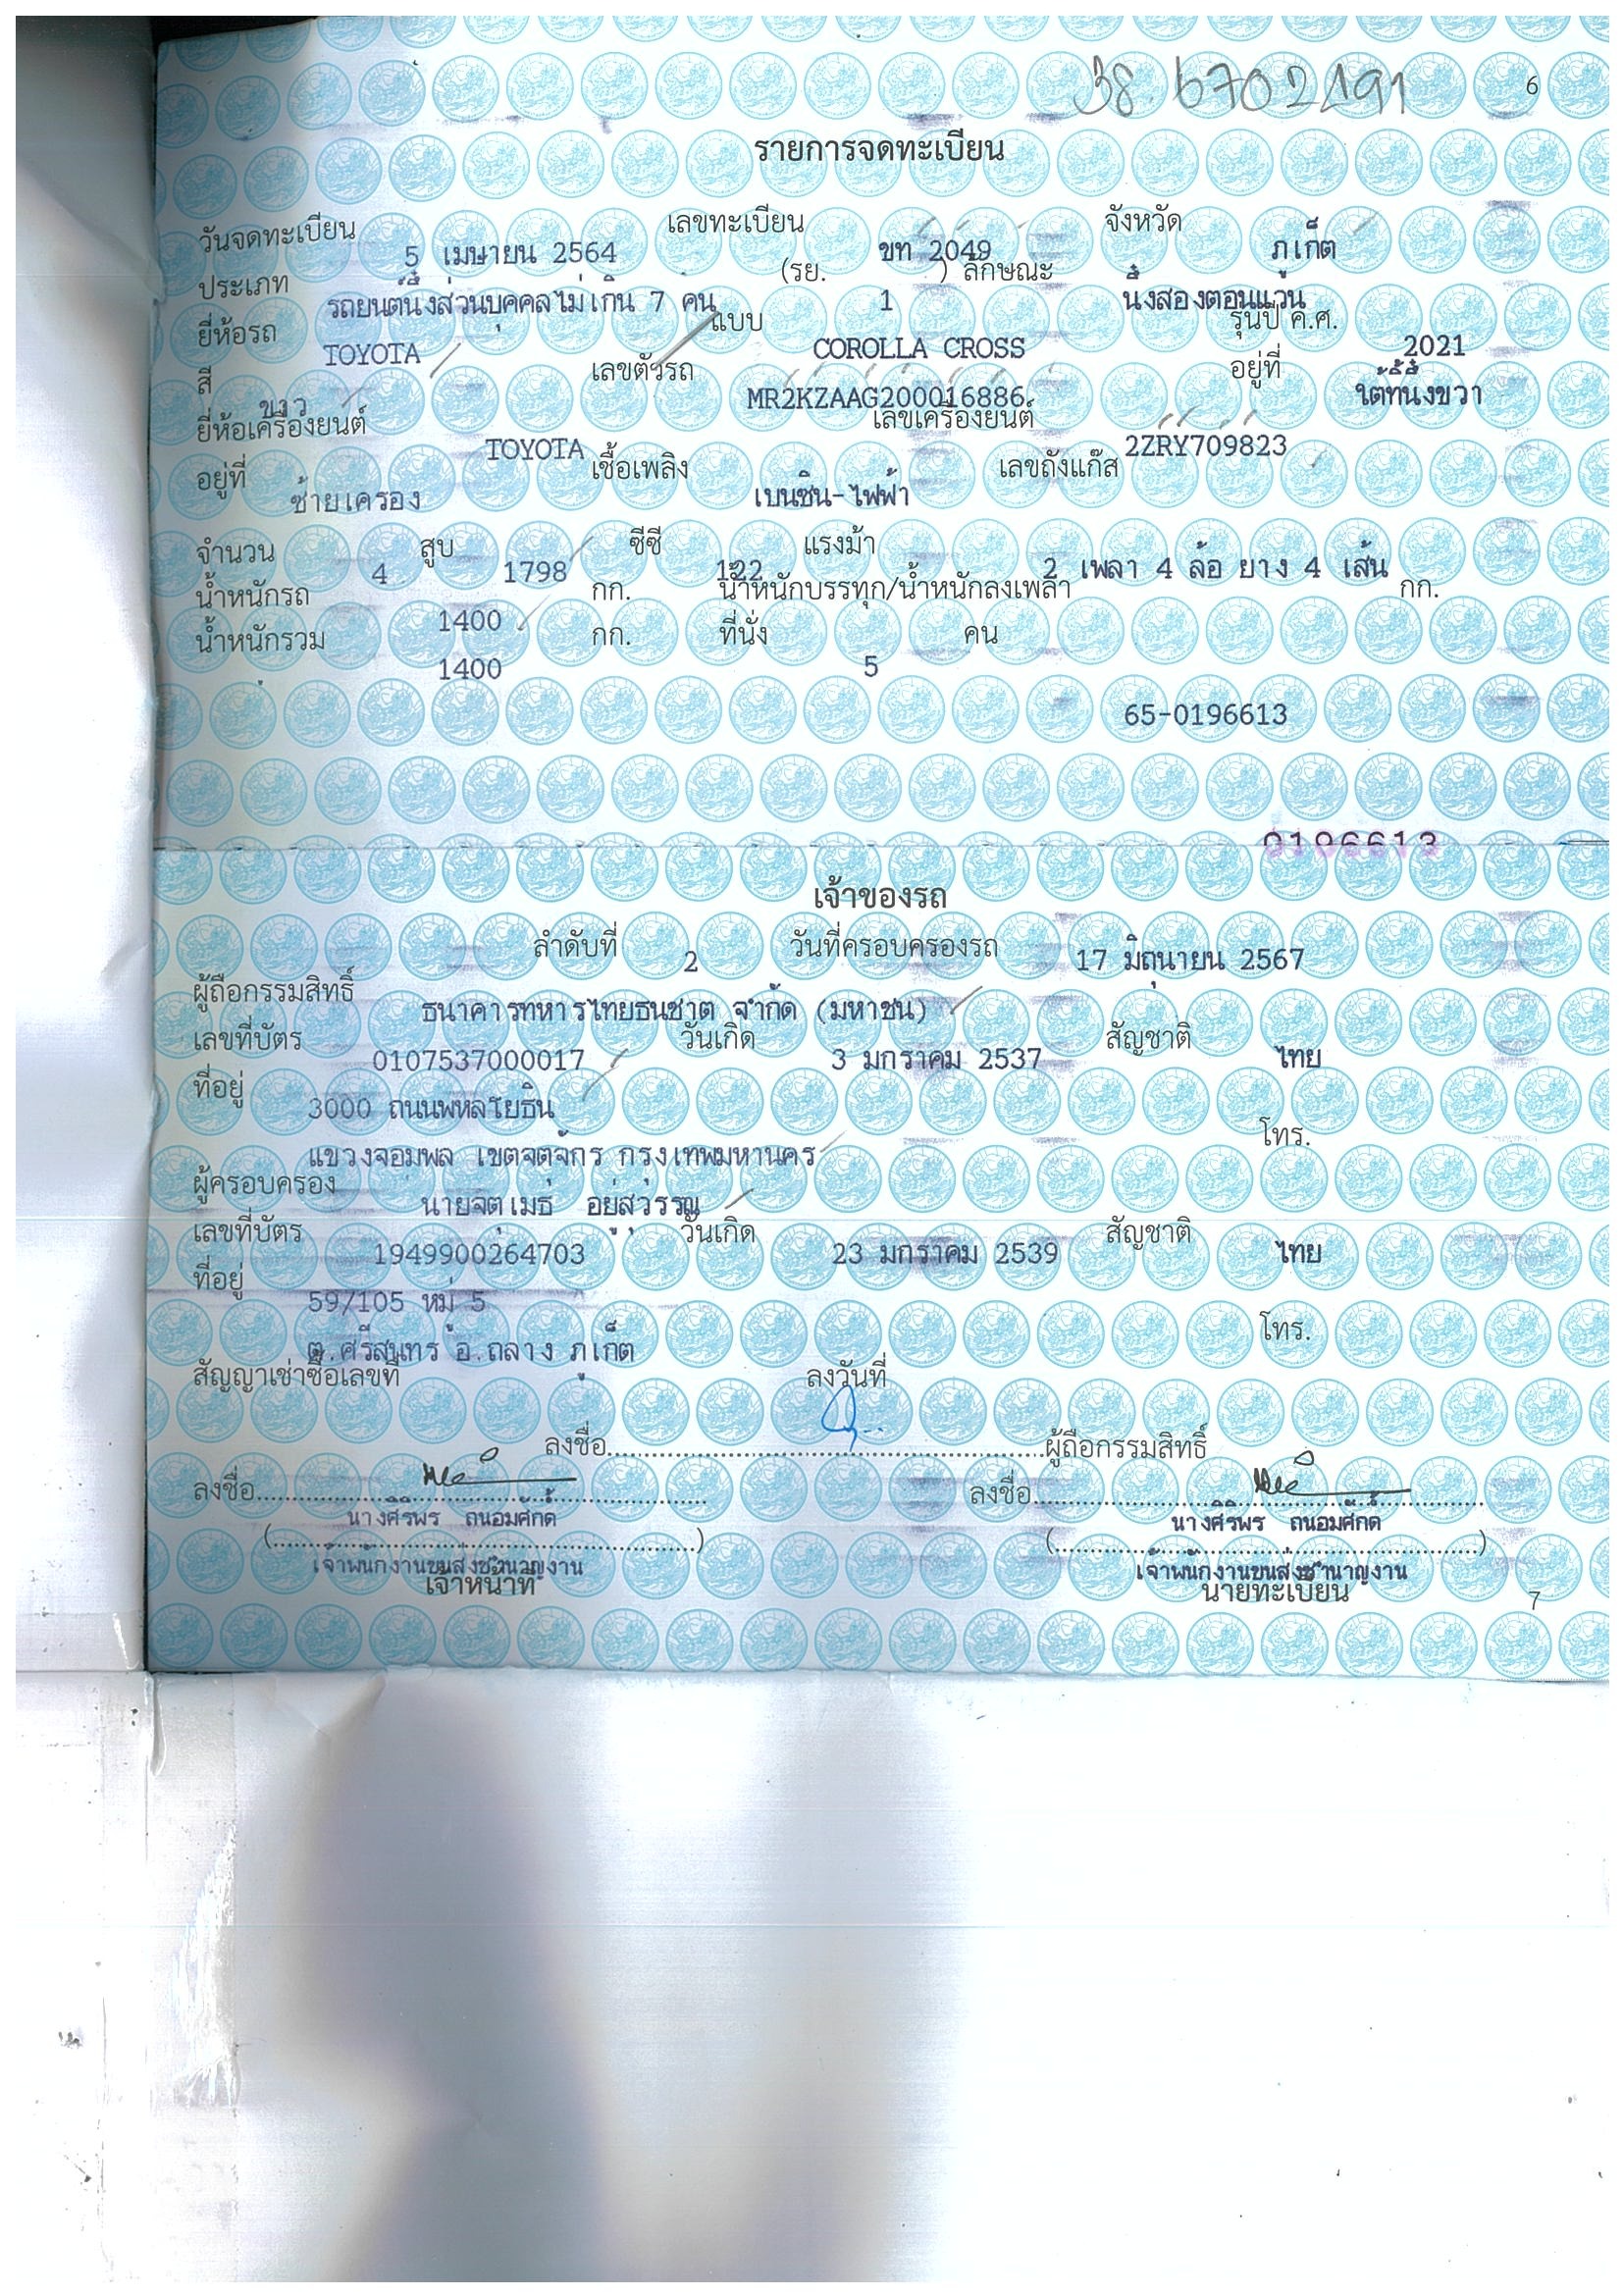 38. 6702191
6
รายการจดทะเบียน
วันจดทะเบียน 5 เมษายน 2564 เลขทะเบียน ขท 2049 จังหวัด ภูเก็ต
ประเภท รถยนต์นั่งส่วนบุคคลไม่เกิน 7 คน (รย. 1 ) ลักษณะ นั่งสองตอนแวน
ยี่ห้อรถ TOYOTA แบบ COROLLA CROSS รุ่นปี ค.ศ. 2021
สี ขาว เลขตัวรถ MR2KZAAG200016886 อยู่ที่ ใต้ที่นั่งขวา
ยี่ห้อเครื่องยนต์ TOYOTA เลขเครื่องยนต์ 2ZRY709823
อยู่ที่ ซ้ายเครื่อง เชื้อเพลิง เบนซิน-ไฟฟ้า เลขถังแก๊ส
จำนวน 4 สูบ 1798 ซีซี 122 แรงม้า 2 เพลา 4 ล้อ ยาง 4 เส้น
น้ำหนักรถ 1400 กก. น้ำหนักบรรทุก/น้ำหนักลงเพลา กก.
น้ำหนักรวม 1400 กก. ที่นั่ง 5 คน
65-0196613
0196613
เจ้าของรถ
ลำดับที่ 2 วันที่ครอบครองรถ 17 มิถุนายน 2567
ผู้ถือกรรมสิทธิ์ ธนาคารทหารไทยธนชาต จำกัด (มหาชน)
เลขที่บัตร 0107537000017 วันเกิด 3 มกราคม 2537 สัญชาติ ไทย
ที่อยู่ 3000 ถนนพหลโยธิน
แขวงจอมพล เขตจตุจักร กรุงเทพมหานคร โทร.
ผู้ครอบครอง นายจตุเมธ อยู่สุวรรณ
เลขที่บัตร 1949900264703 วันเกิด 23 มกราคม 2539 สัญชาติ ไทย
ที่อยู่ 59/105 หมู่ 5
ต.ศรีสุนทร อ.ถลาง ภูเก็ต โทร.
สัญญาเช่าซื้อเลขที่ ลงวันที่
ลงชื่อ ผู้ถือกรรมสิทธิ์
ลงชื่อ ลงชื่อ
(นางศิริพร ถนอมศักดิ์) (นางศิริพร ถนอมศักดิ์)
เจ้าพนักงานขนส่งชำนาญงาน เจ้าพนักงานขนส่งชำนาญงาน
เจ้าหน้าที่ นายทะเบียน
7